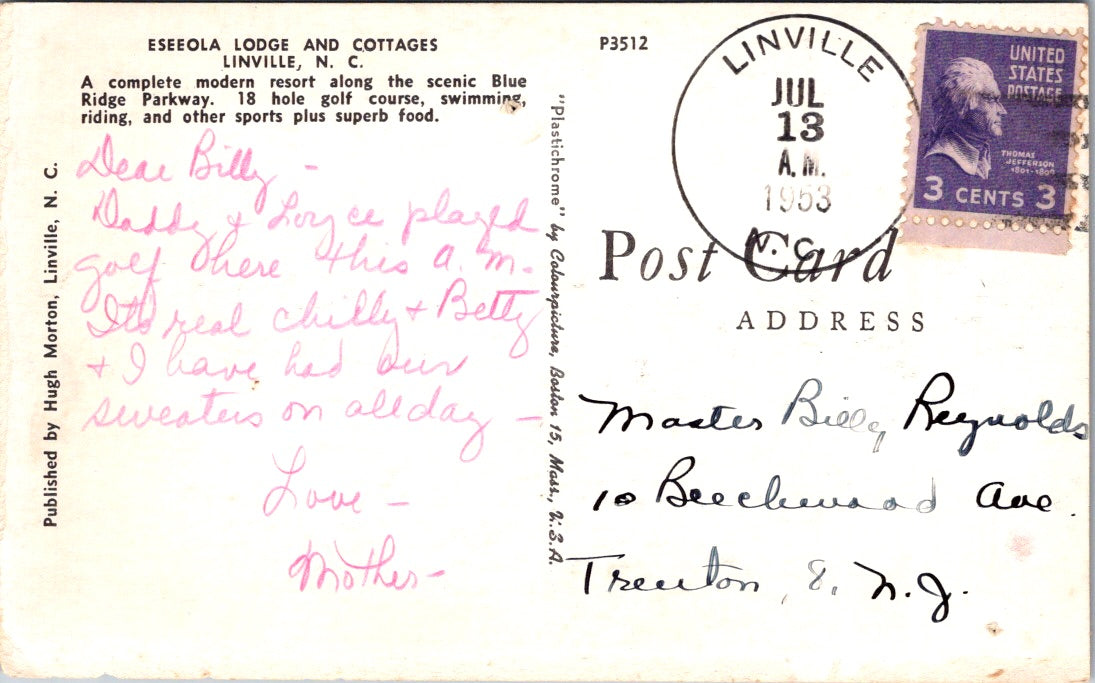 ESEEOLA LODGE AND COTTAGES
LINVILLE, N. C.
A complete modern resort along the scenic Blue
Ridge Parkway. 18 hole golf course, swimming,
riding, and other sports plus superb food.
Dear Billy -
Daddy + Loryce played
golf here this A. M.
Its real chilly + Betty
+ I have had our
sweaters on all day -
Love -
Mother -
Published by Hugh Morton, Linville, N. C.
"Plastichrome" by Colourpicture, Boston 15, Mass., U.S.A.
P3512
LINVILLE
JUL
13
A.M.
1953
N.C.
UNITED
STATES
POSTAGE
THOMAS
JEFFERSON
1801-1809
3 CENTS 3
Post Card
ADDRESS
Master Billy Reynolds
10 Beechwood Ave.
Trenton, 8, N.J.